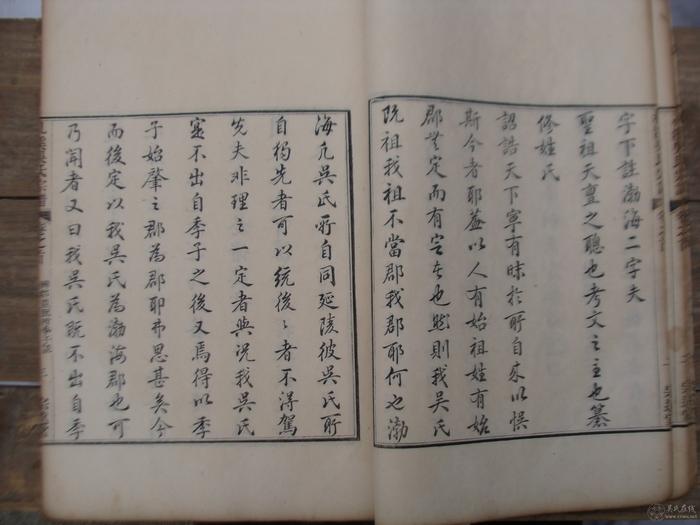 字下註渤海二字夫
聖祖天亶之聰也考文之主也纂
修姓氏
詔誥天下寧有昧於所自來以悞
斯今者耶蓋以人有始祖姓有始
郡無定而有定者也然則我吳氏
既祖我祖不當郡我郡耶何也渤
海凡吳氏所自同延陵彼吳氏所
自獨先者可以統後後者不得駕
先夫非理之一定者與況我吳氏
寔不出自季子之後又焉得以季
子始肇之郡為郡耶弗思甚矣今
而後定以我吳氏為渤海郡也可
乃閒者又曰我吳氏既不出自季
吳氏在线